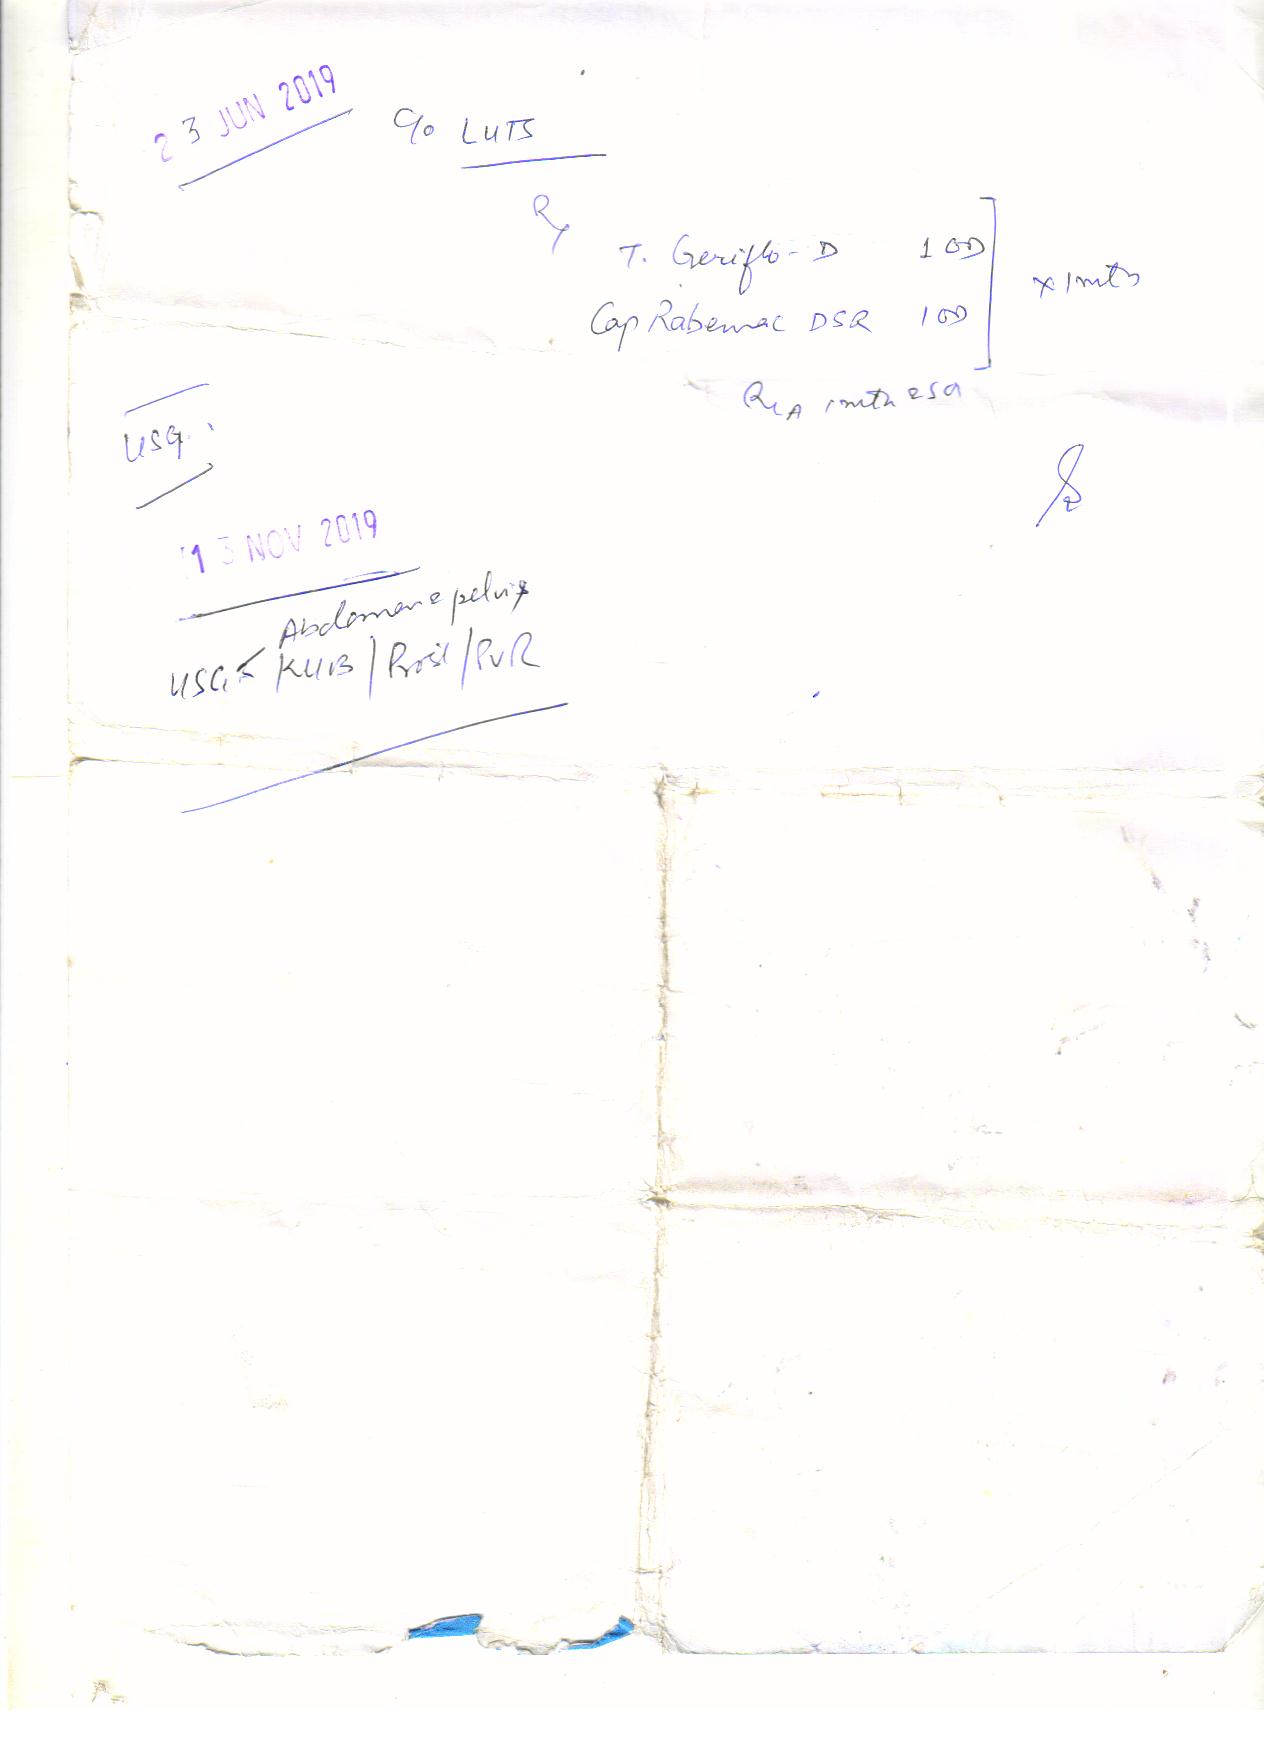 23 JUN 2019
C/o LUTS
Rx
T. Geriflo-D 1 OD
Cap Rabemac DSR 1 OD
x 1 mth
1 mth
USG
13 NOV 2019
Abdomen c pelvis
USG KUB / Prost / PVR